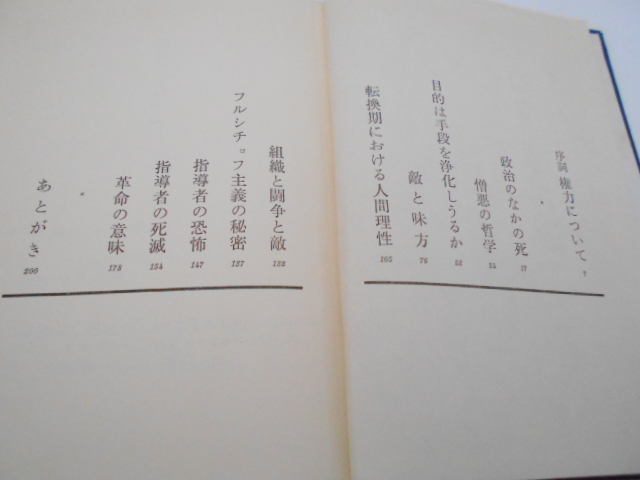 序詞 権力について 7
政治のなかの死 17
憎悪の哲学 34
目的は手段を浄化しうるか 52
敵と味方 76
転換期における人間理性 105
組織と闘争と敵 132
フルシチョフ主義の秘密 137
指導者の恐怖 147
指導者の死滅 154
革命の意味 178
あとがき 200